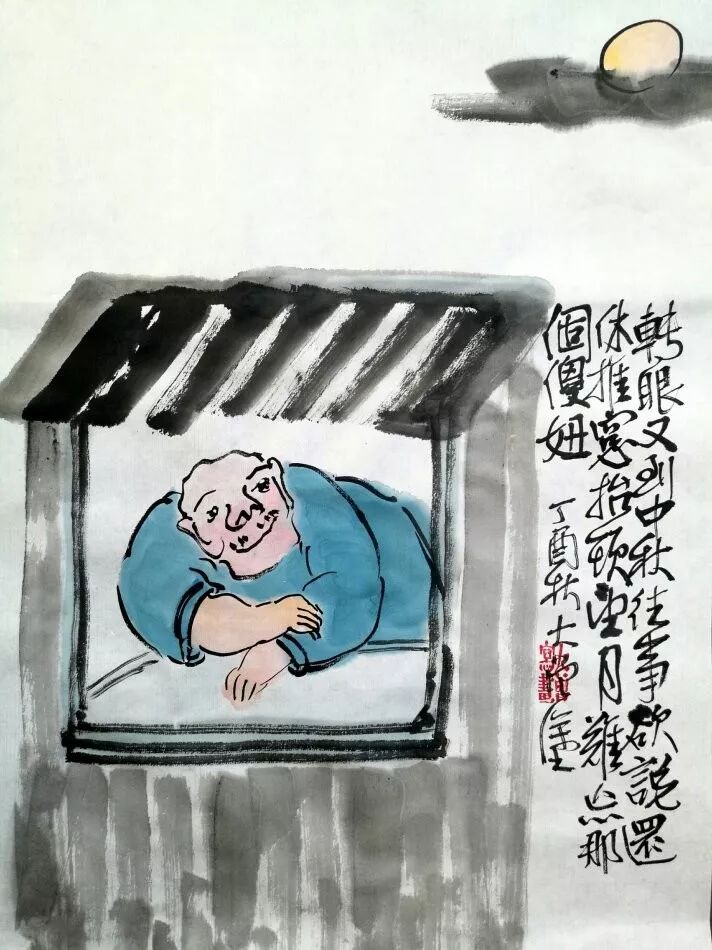 转眼又到中秋往事欲說還
休推窓抬頭望月難忘那
個傻妞
丁酉秋大